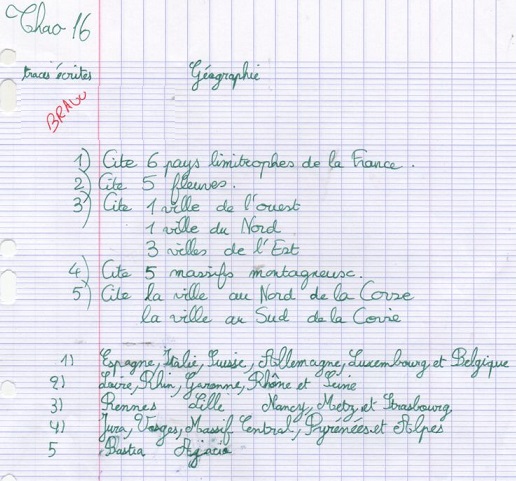 Thao 16
traces écrites Géographie
BRAVO
1) Cite 6 pays limitrophes de la France.
2) Cite 5 fleuves.
3) Cite 1 ville de l'ouest
1 ville du Nord
3 villes de l'Est
4) Cite 5 massifs montagneusc.
5) Cite la ville au Nord de la Corse
la ville au Sud de la Corse
1) Espagne, Italie, Suisse, Allemagne, Luxembourg et Belgique
2) Loire, Rhin, Garonne, Rhône et Seine
3) Rennes Lille Nancy, Metz, et Strasbourg
4) Jura, Vosges, Massif Central, Pyrénées et Alpes
5 Bastia Ajacio